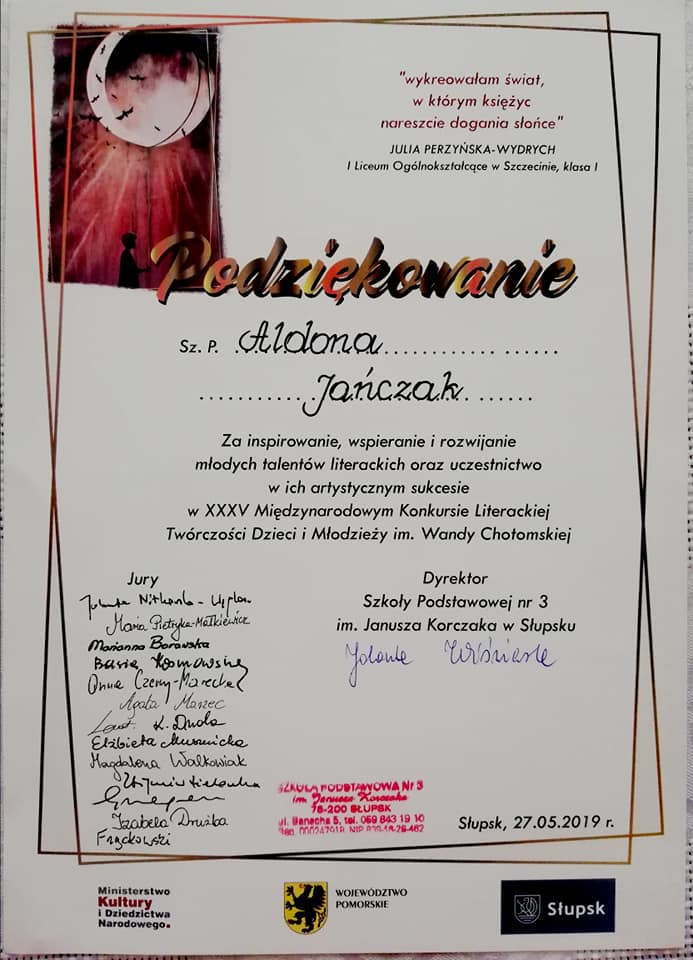 "wykreowałam świat,
w którym księżyc
nareszcie dogania słońce"
JULIA PERZYŃSKA-WYDRYCH
I Liceum Ogólnokształcące w Szczecinie, klasa I
Podziękowanie
Sz. P. Aldona
Jańczak
Za inspirowanie, wspieranie i rozwijanie
młodych talentów literackich oraz uczestnictwo
w ich artystycznym sukcesie
w XXXV Międzynarodowym Konkursie Literackiej
Twórczości Dzieci i Młodzieży im. Wandy Chotomskiej
Jury
Maria Pietryka-Małkiewicz
Marianna Borawska
Basia
Anna Czerny-Marecka
Agata Marzec
K. Duda
Elżbieta
Magdalena Walkowiak
Izabela Drużba
Frąckowski
Dyrektor
Szkoły Podstawowej nr 3
im. Janusza Korczaka w Słupsku
Jolanta
SZKOŁA PODSTAWOWA Nr 3
im. Janusza Korczaka
76-200 SŁUPSK
ul. Banacha 5, tel. 059 843 19 10
Słupsk, 27.05.2019 r.
Ministerstwo
Kultury
i Dziedzictwa
Narodowego.
WOJEWÓDZTWO
POMORSKIE
Słupsk